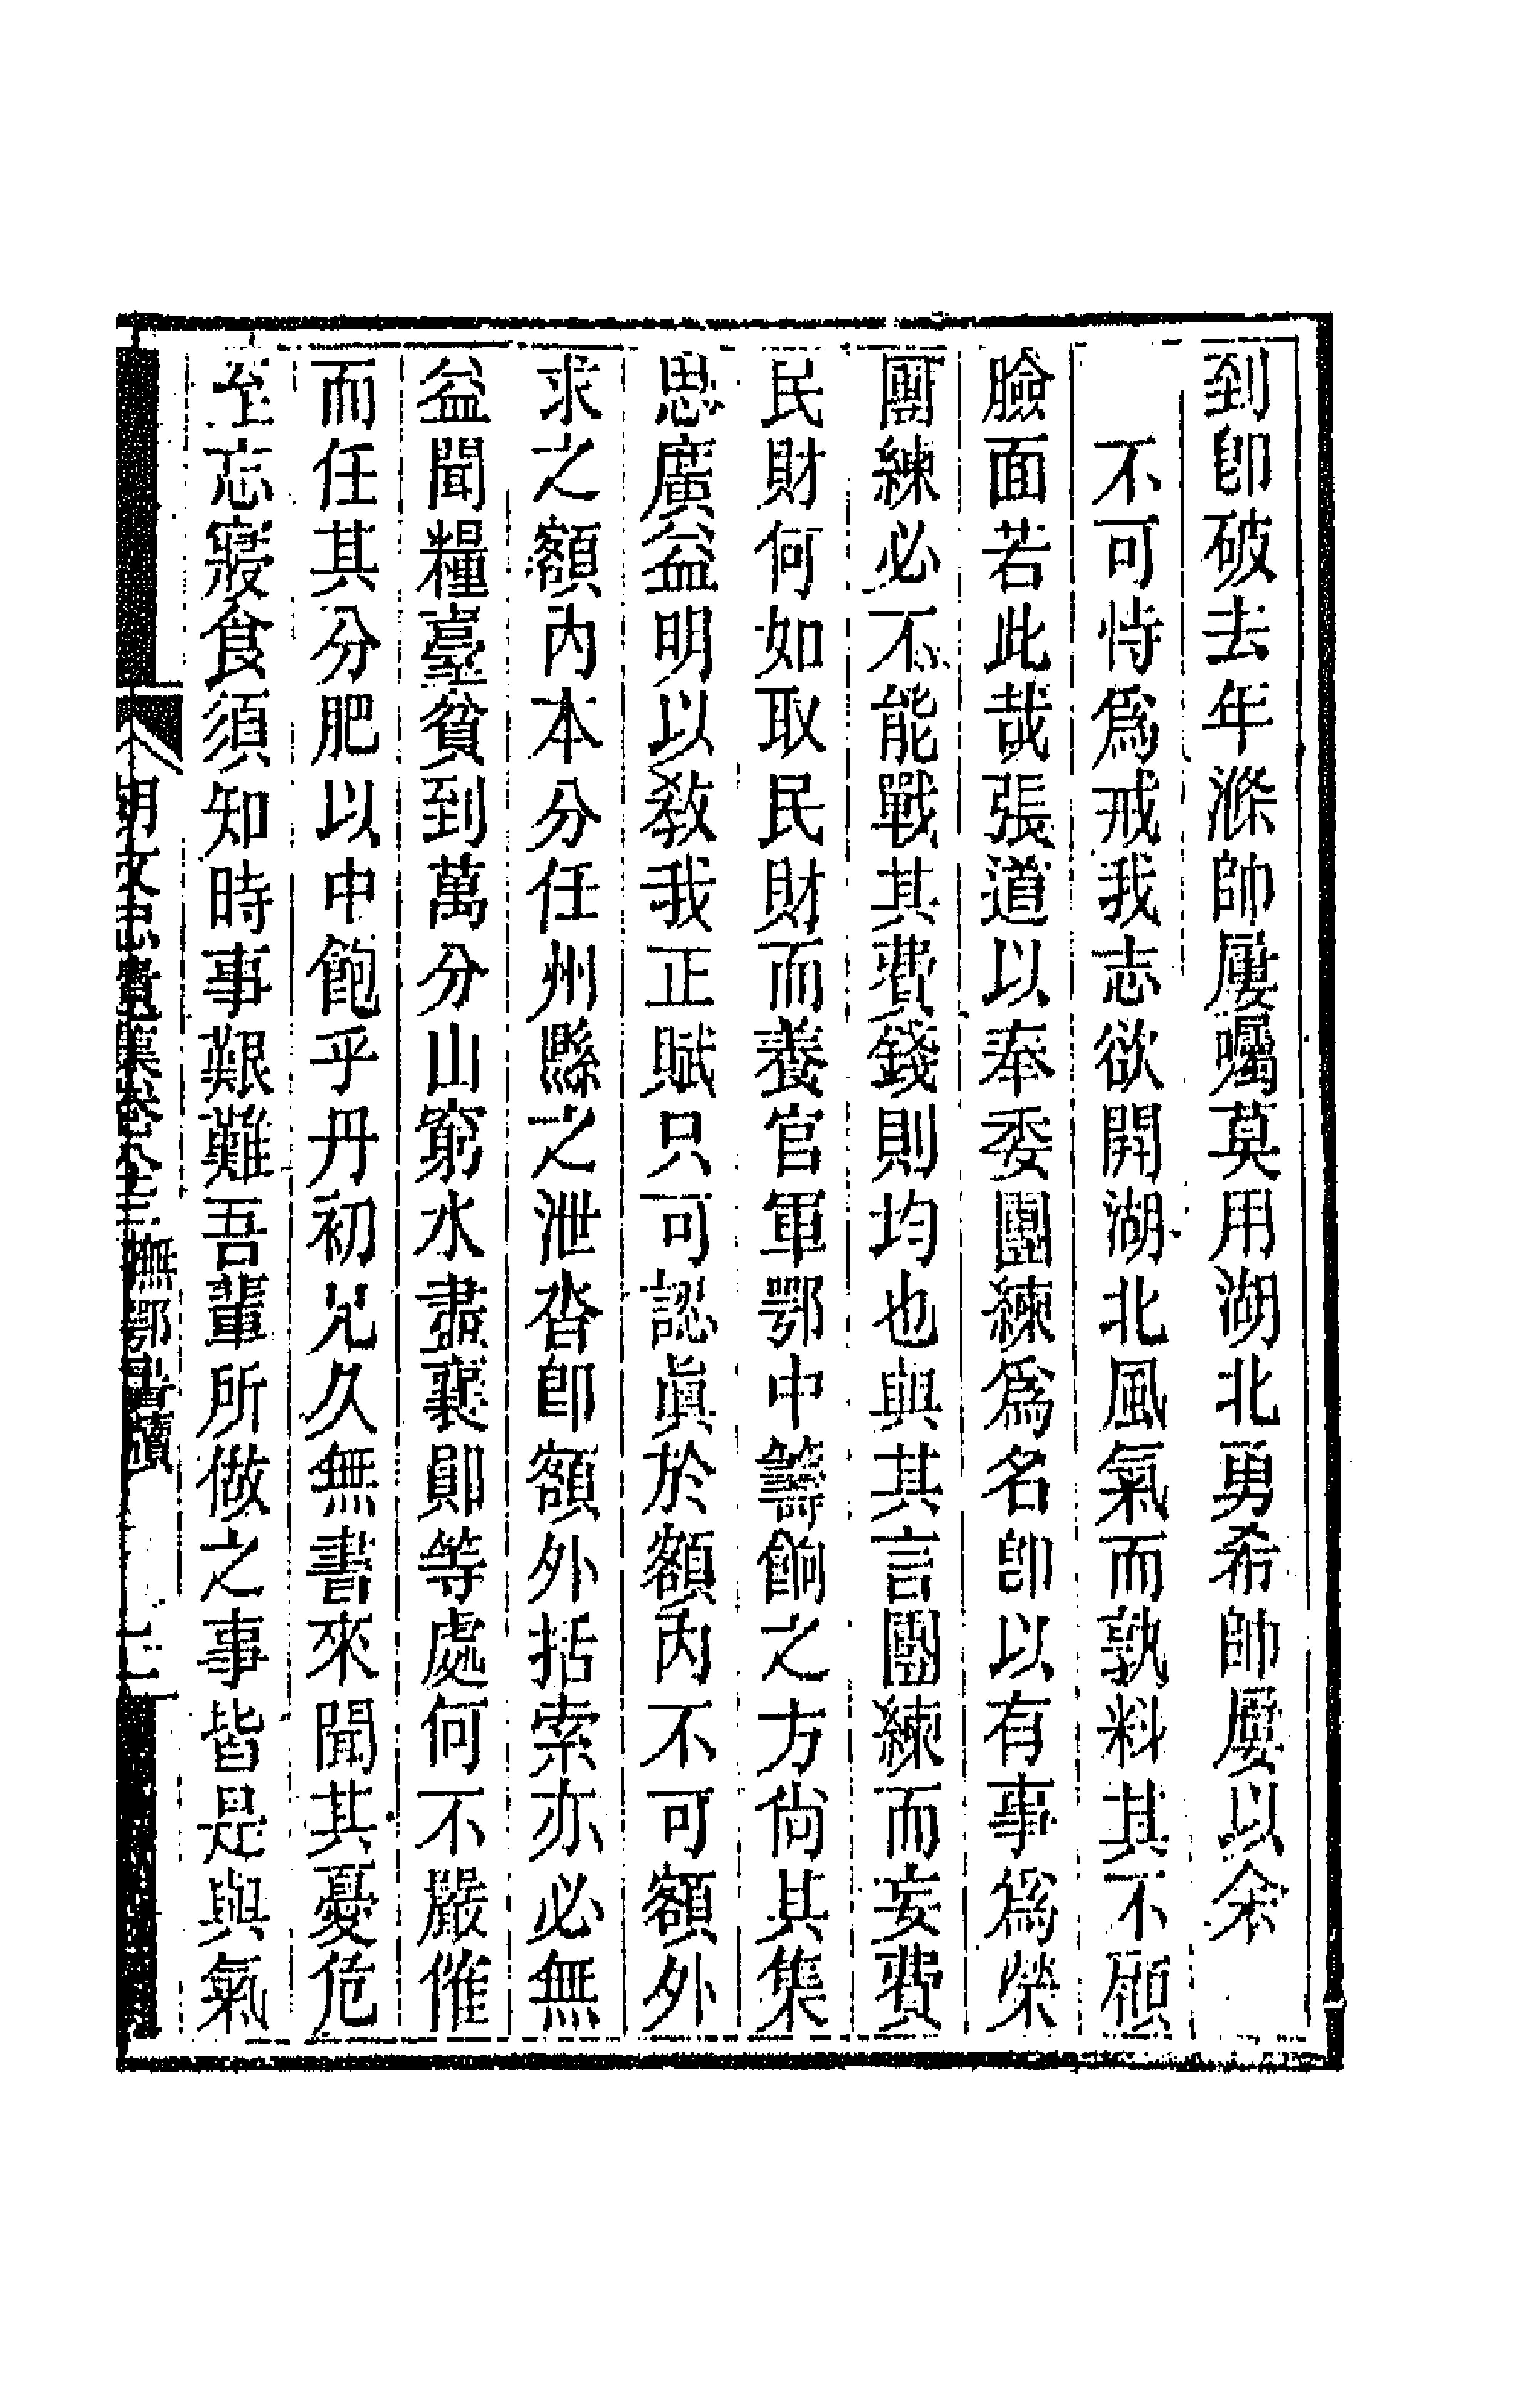 到卽破去年滁帥屢囑莫用湖北勇希帥屢以余
不可恃爲戒我志欲開湖北風氣而孰料其不顧
臉面若此哉張道以奉委團練爲名卽以有事爲榮
團練必不能戰其費錢則均也與其言團練而妄費
民財何如取民財而養官軍鄂中籌餉之方尙其集
思廣益明以敎我正賦只可認眞於額內不可額外
求之額內本分任州縣之泄沓卽額外括索亦必無
益聞糧臺貧到萬分山窮水盡襄鄖等處何不嚴催
而任其分肥以中飽乎丹初兄久無書來聞其憂危
至忘寢食須知時事艱難吾輩所做之事皆是與氣
胡文忠遺集卷六十三 撫鄂書牘